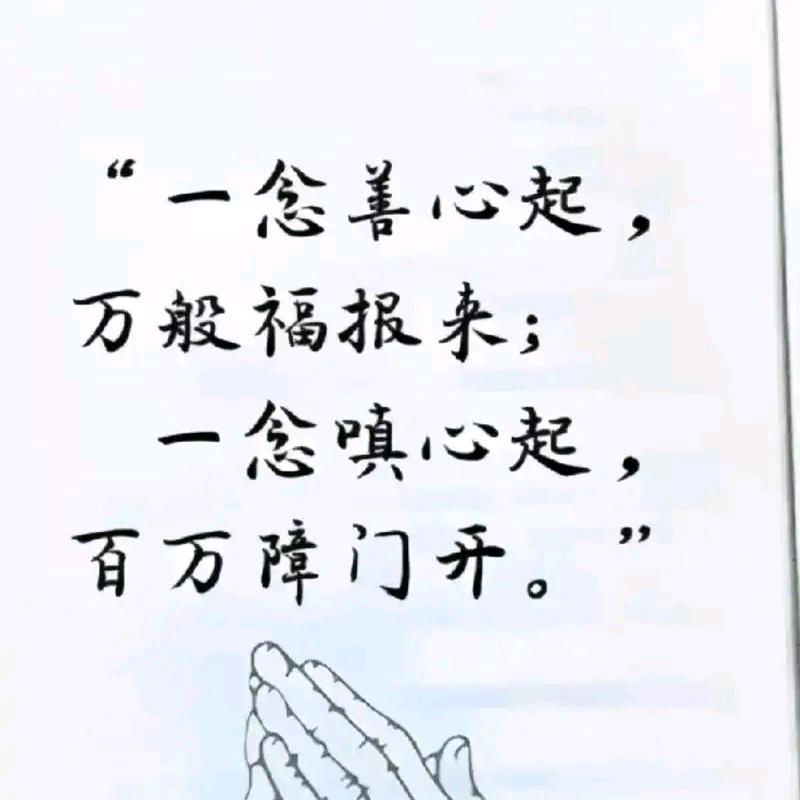 “一念善心起，
万般福报来；
一念嗔心起，
百万障门开。”